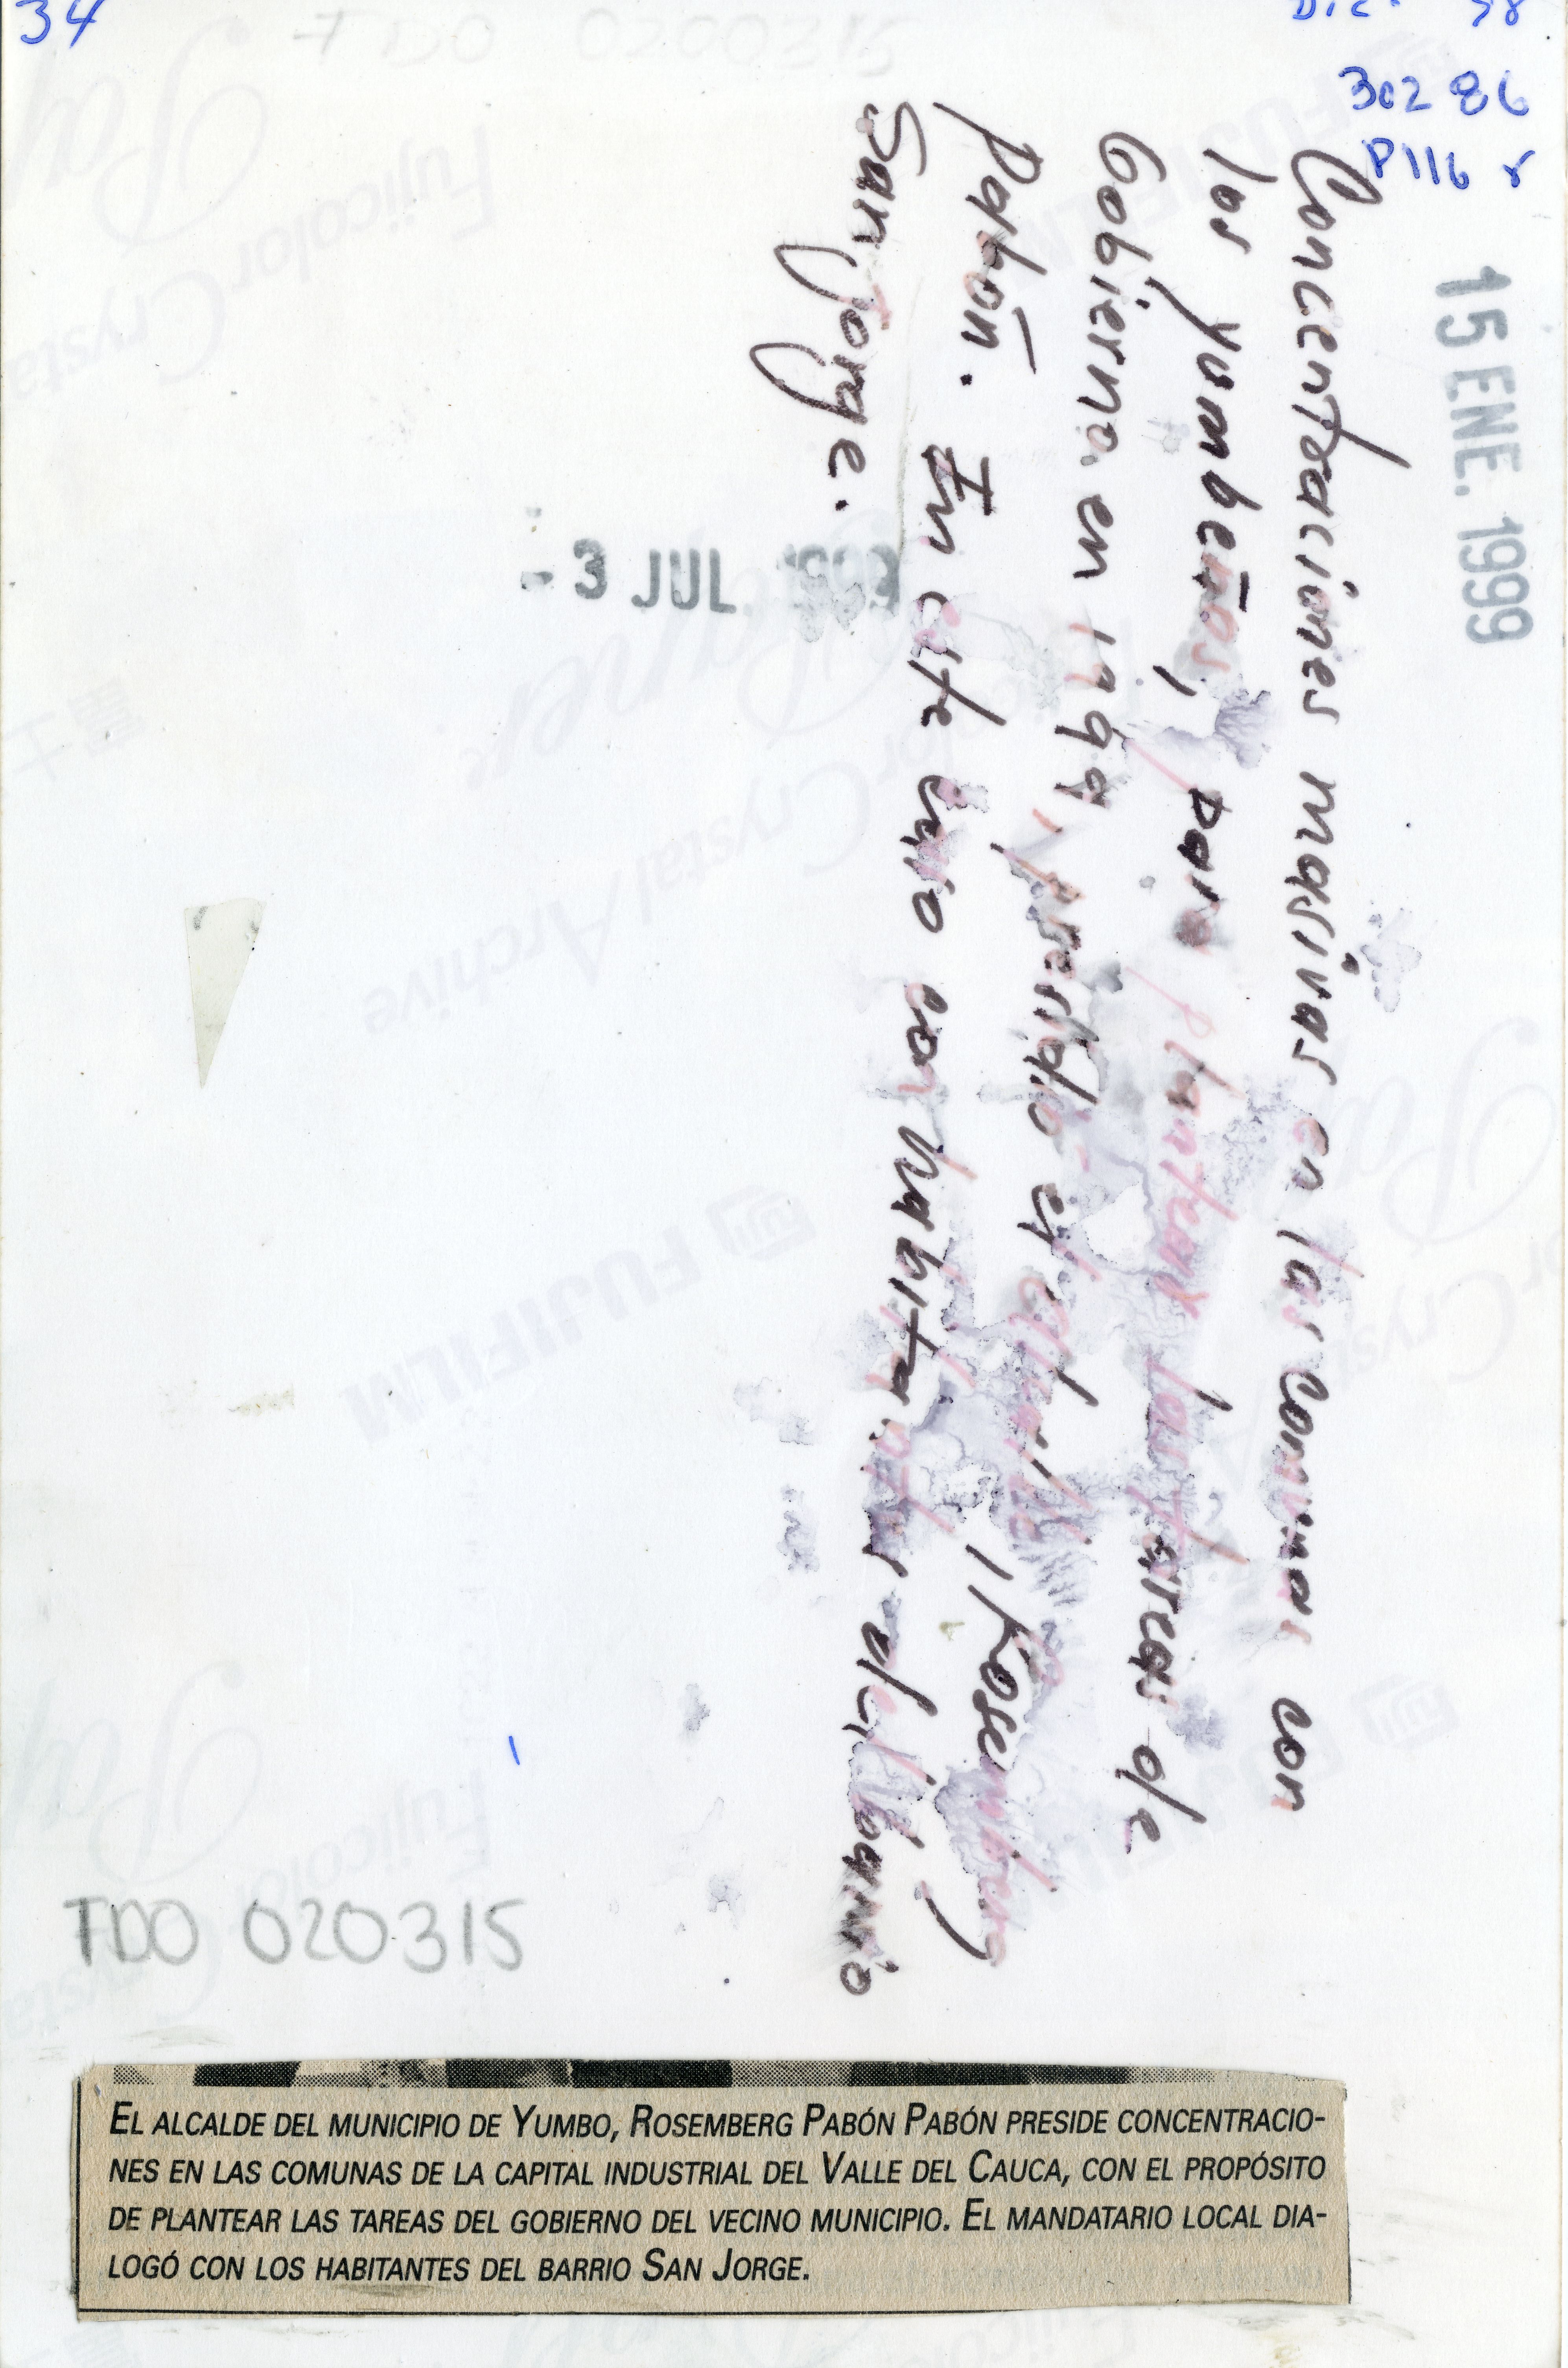 34
Dic. 98
302 86
P116 r
15 ENE. 1999
Concentraciones masivas en las comunas con
los yumbeños, para plantear las tareas de
Gobierno en 1999, preside el alcalde, Rosemberg
Pabón. En este caso con habitantes del barrio
San Jorge.
- 3 JUL.
TDO 020315
EL ALCALDE DEL MUNICIPIO DE YUMBO, ROSEMBERG PABÓN PABÓN PRESIDE CONCENTRACIO-
NES EN LAS COMUNAS DE LA CAPITAL INDUSTRIAL DEL VALLE DEL CAUCA, CON EL PROPÓSITO
DE PLANTEAR LAS TAREAS DEL GOBIERNO DEL VECINO MUNICIPIO. EL MANDATARIO LOCAL DIA-
LOGÓ CON LOS HABITANTES DEL BARRIO SAN JORGE.
FUJIFILM
Fujicolor
Crystal Archive
Paper